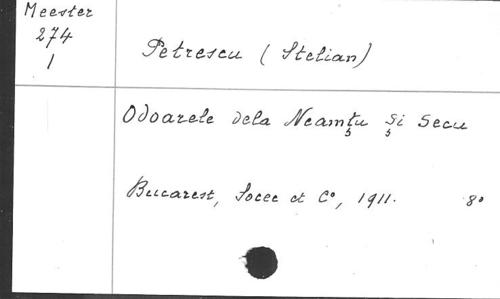 Meester
274
1
Petrescu (Stelian)
Odoarele dela Neamţu şi Secu
Bucarest, Socec et Cº, 1911. 8º